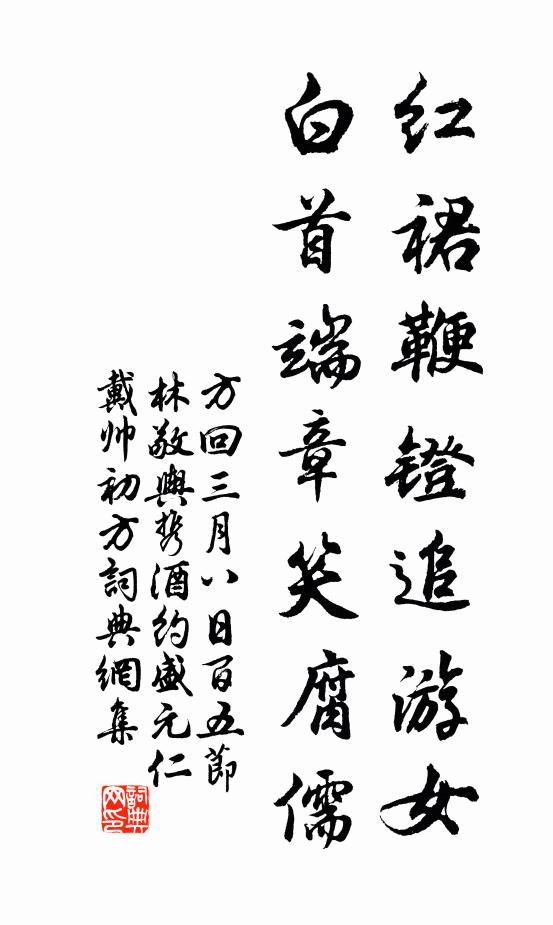 红裙鞭镫追游女
白首端章笑腐儒
方回三月八日百五節
林敬輿携酒約盛元仁
戴帅初方詞典網集
詞典网印